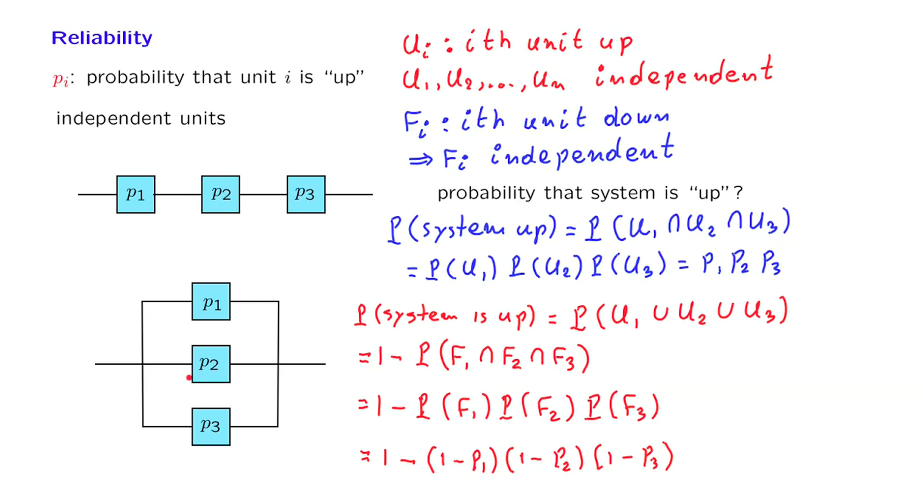 Reliability
pᵢ: probability that unit i is “up”
independent units
Uᵢ : ith unit up
U₁, U₂, ..., Uₙ independent
Fᵢ : ith unit down
⇒ Fᵢ independent
p₁ p₂ p₃
probability that system is “up”?
P(system up) = P(U₁ ∩ U₂ ∩ U₃)
= P(U₁) P(U₂) P(U₃) = P₁ P₂ P₃
p₁
p₂
p₃
P(system is up) = P(U₁ ∪ U₂ ∪ U₃)
= 1 - P(F₁ ∩ F₂ ∩ F₃)
= 1 - P(F₁) P(F₂) P(F₃)
= 1 - (1 - P₁)(1 - P₂)(1 - P₃)